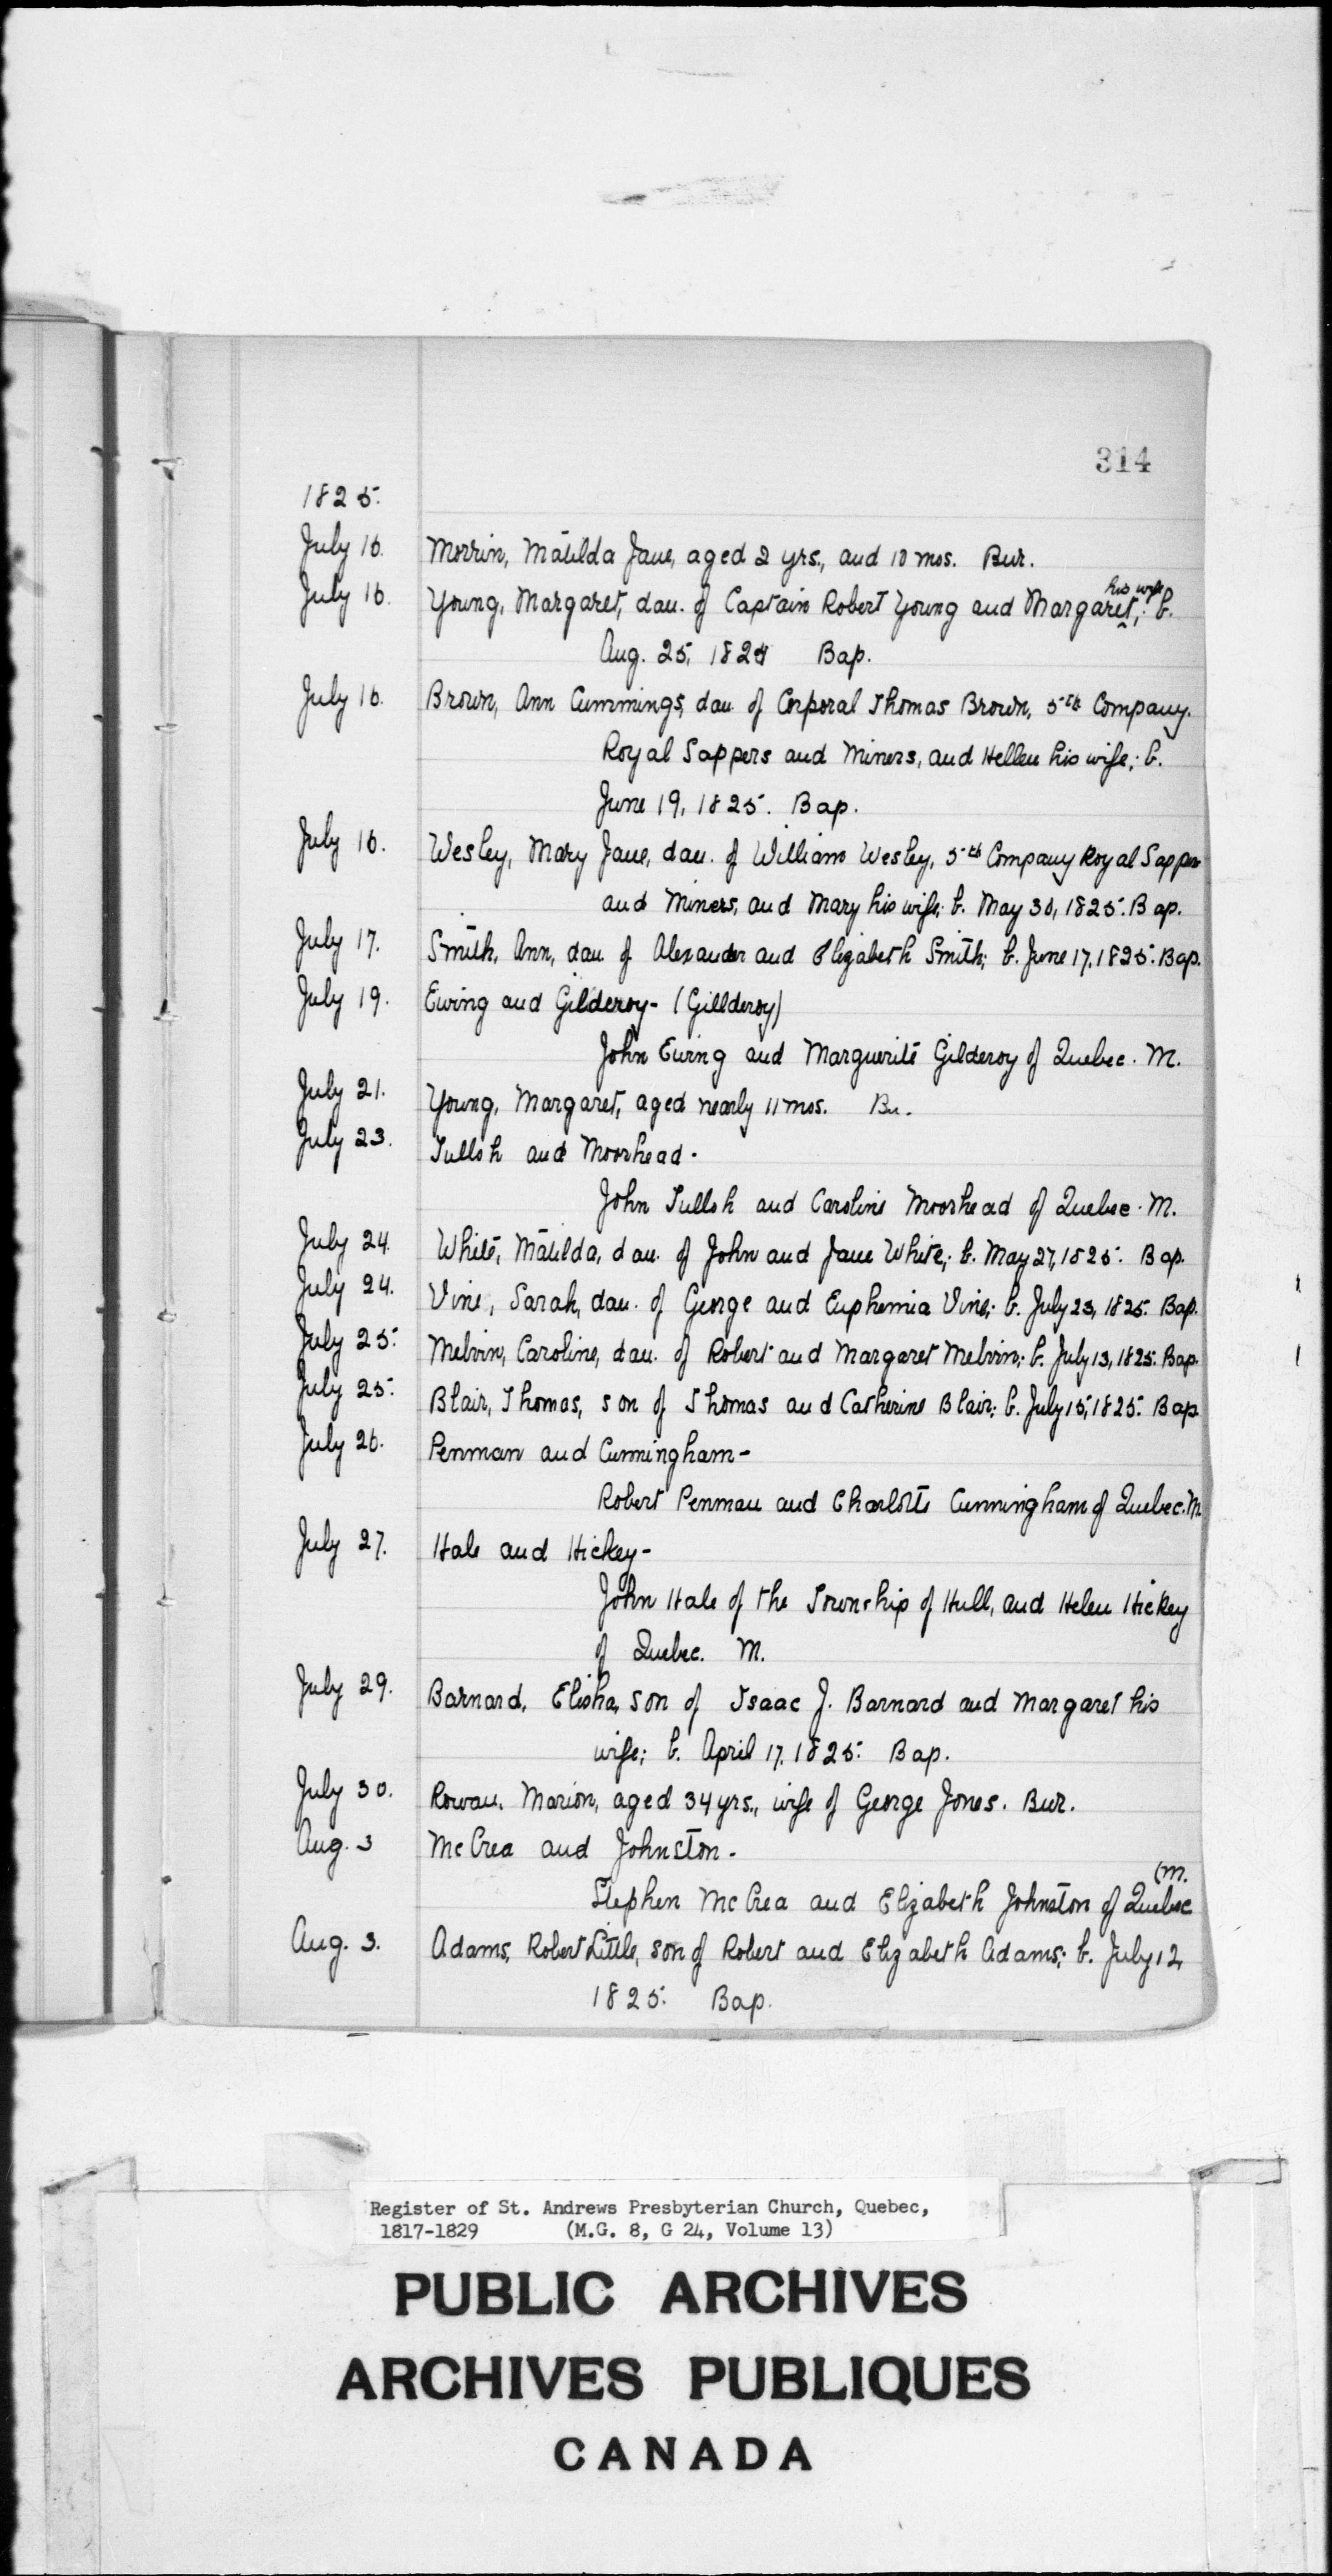 314
1825.
July 16. Morrin, Matilda Jane, aged 2 yrs., and 10 mos. Bur.
July 16. Young, Margaret, dau. of Captain Robert Young and Margaret, his wife; b.
Aug. 25, 1824 Bap.
July 16. Brown, Ann Cummings, dau. of Corporal Thomas Brown, 5th Company.
Royal Sappers and Miners, and Hellen his wife; b.
June 19, 1825. Bap.
July 16. Wesley, Mary Jane, dau. of William Wesley, 5th Company Royal Sappers
and Miners, and Mary his wife; b. May 30, 1825. Bap.
July 17. Smith, Ann, dau. of Alexander and Elizabeth Smith; b. June 17, 1825. Bap.
July 19. Ewing and Gilderoy - (Gillderoy)
John Ewing and Marguerite Gilderoy of Quebec. M.
July 21. Young, Margaret, aged nearly 11 mos. Bu.
July 23. Tulloh and Moorhead.
John Tulloh and Caroline Moorhead of Quebec. M.
July 24. White, Matilda, dau. of John and Jane White; b. May 27, 1825. Bap.
July 24. Vine, Sarah, dau. of George and Euphemia Vine; b. July 23, 1825. Bap.
July 25. Melvin, Caroline, dau. of Robert and Margaret Melvin; b. July 13, 1825. Bap.
July 25. Blair, Thomas, son of Thomas and Catherine Blair; b. July 15, 1825. Bap.
July 26. Penman and Cunningham -
Robert Penman and Charlotte Cunningham of Quebec. M.
July 27. Hale and Hickey -
John Hale of the Township of Hull, and Helen Hickey
of Quebec. M.
July 29. Barnard, Elisha, son of Isaac J. Barnard and Margaret his
wife; b. April 17, 1825. Bap.
July 30. Rowan, Marion, aged 34 yrs., wife of George Jones. Bur.
Aug. 3 McCrea and Johnston.
Stephen McCrea and Elizabeth Johnston of Quebec (M.
Aug. 3. Adams, Robert Little, son of Robert and Elizabeth Adams; b. July 12,
1825. Bap.
Register of St. Andrews Presbyterian Church, Quebec,
1817-1829 (M.G. 8, G 24, Volume 13)
PUBLIC ARCHIVES
ARCHIVES PUBLIQUES
CANADA